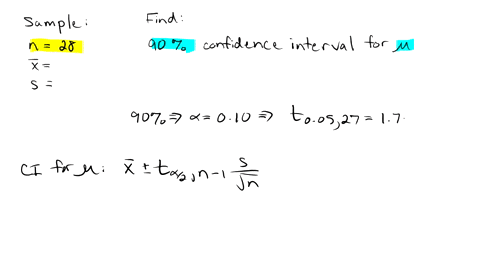 Sample:
n = 28
x̄ =
s =
Find:
90% confidence interval for μ
90% ⇒ α = 0.10 ⇒ t0.05,27 = 1.7
CI for μ: x̄ ± tα/2, n-1 s/√n